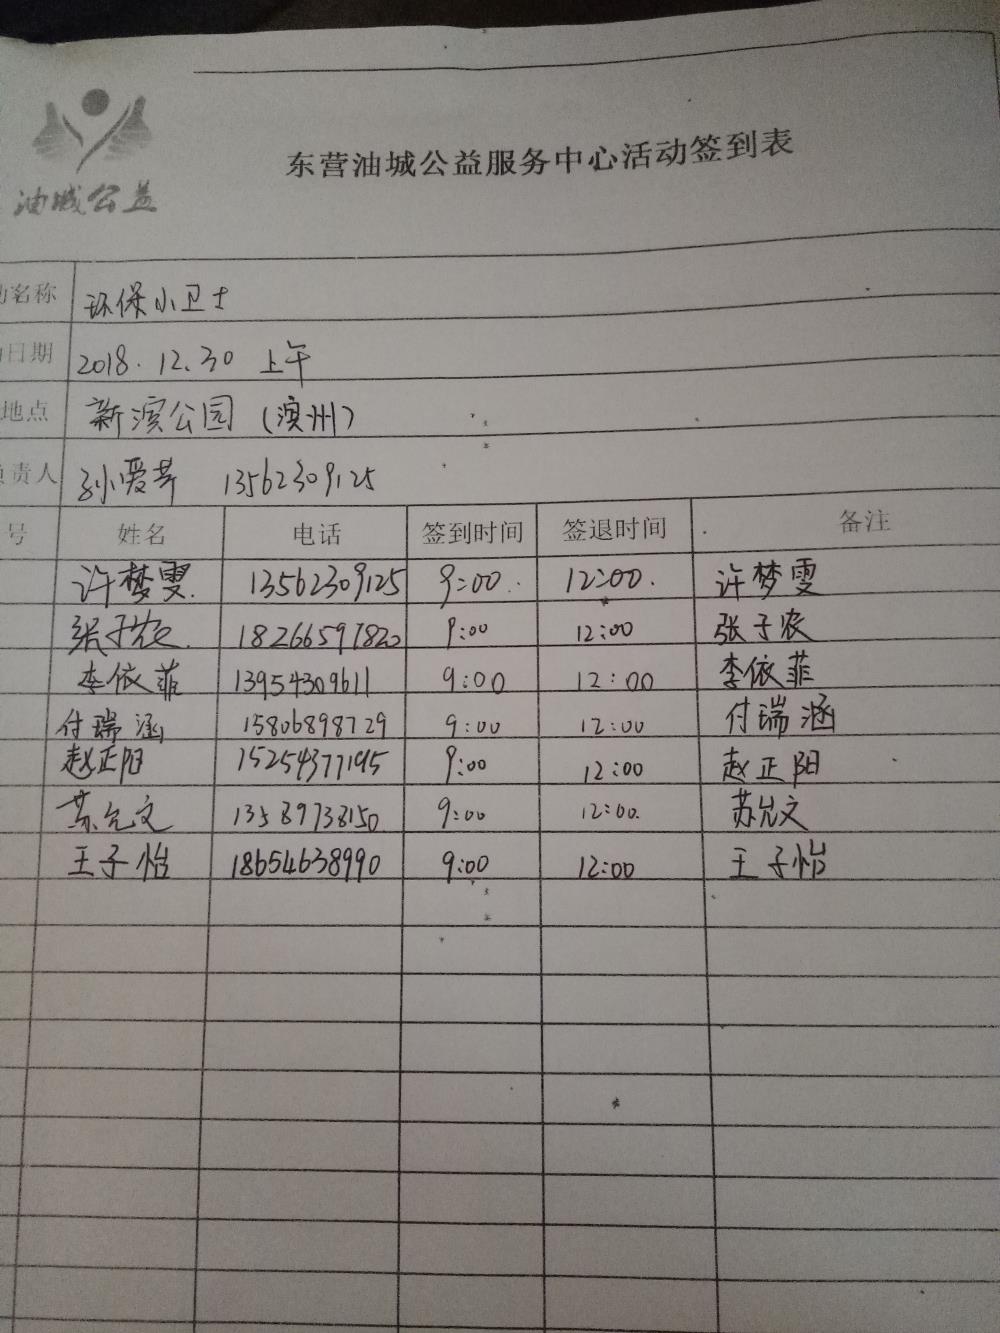 油城公益
东营油城公益服务中心活动签到表
动名称 环保小卫士
日期 2018.12.30 上午
地点 新滨公园（澳州）
负责人 孙爱芹 13562309125
号 姓名 电话 签到时间 签退时间 备注
许梦雯. 13562309125 9:00. 12:00. 许梦雯
张子农. 18266597820 9:00 12:00 张子农
李依菲 13954309611 9:00 12:00 李依菲
付瑞涵 15806898729 9:00 12:00 付瑞涵
赵正阳 15254377195 9:00 12:00 赵正阳
苏允文 13589738150 9:00 12:00. 苏允文
王子怡 18654638990 9:00 12:00 王子怡